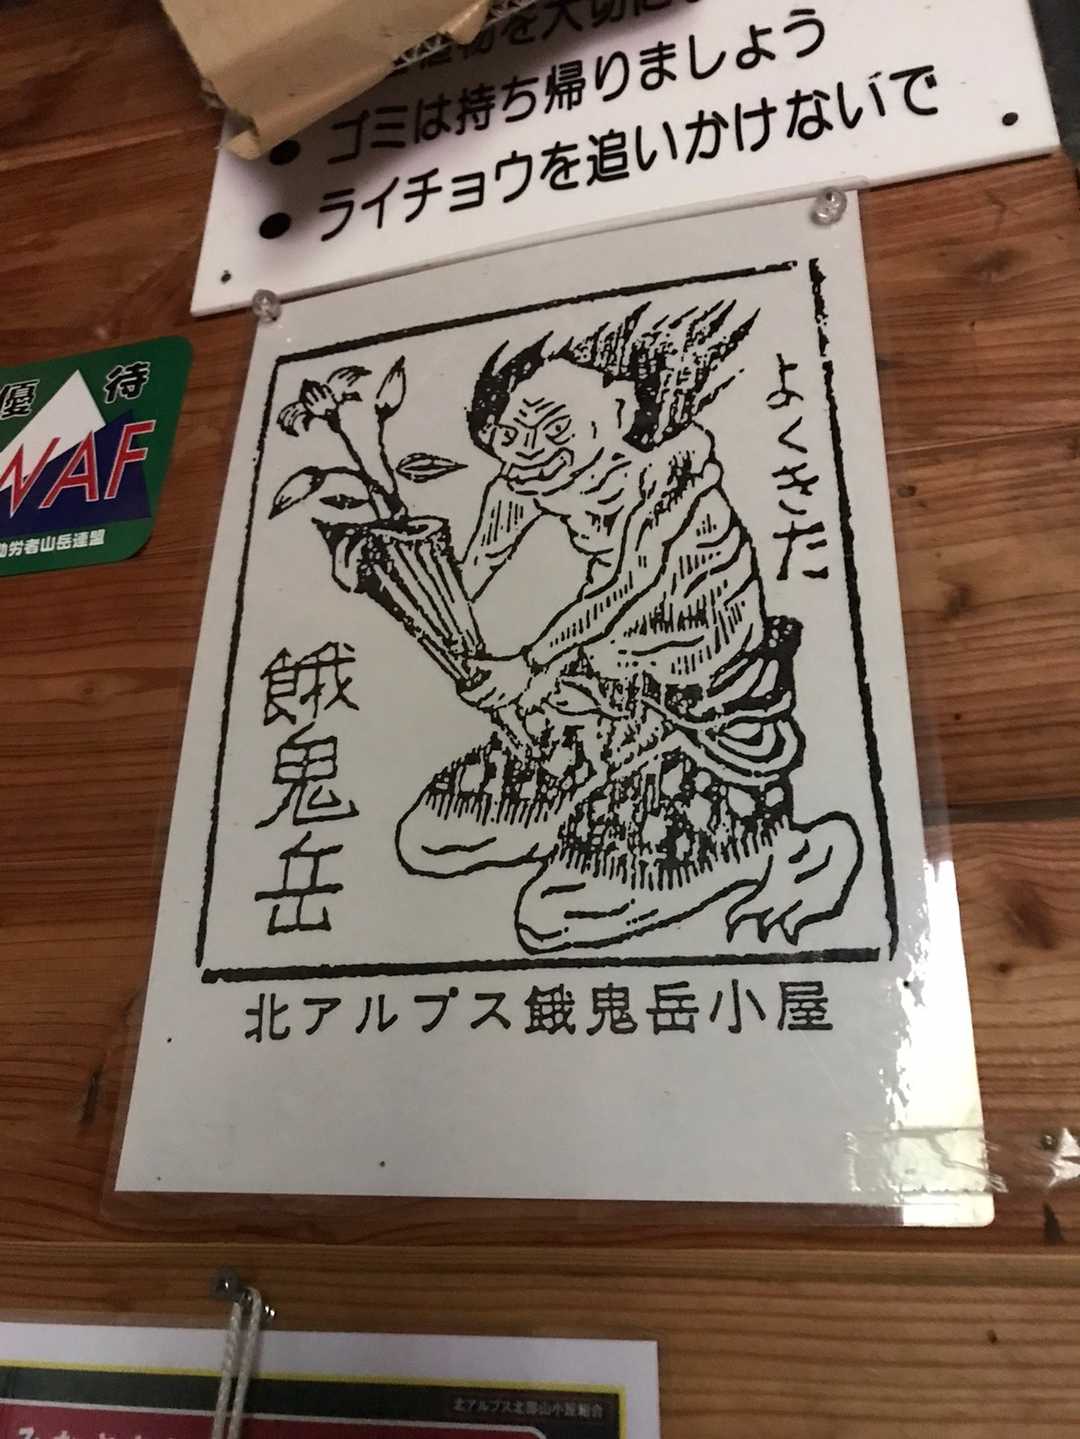 を大切に
● ゴミは持ち帰りましょう
● ライチョウを追いかけないで
優待
WAF
労者山岳連盟
よくきた
餓鬼岳
北アルプス餓鬼岳小屋
北アルプス北部山小屋組合